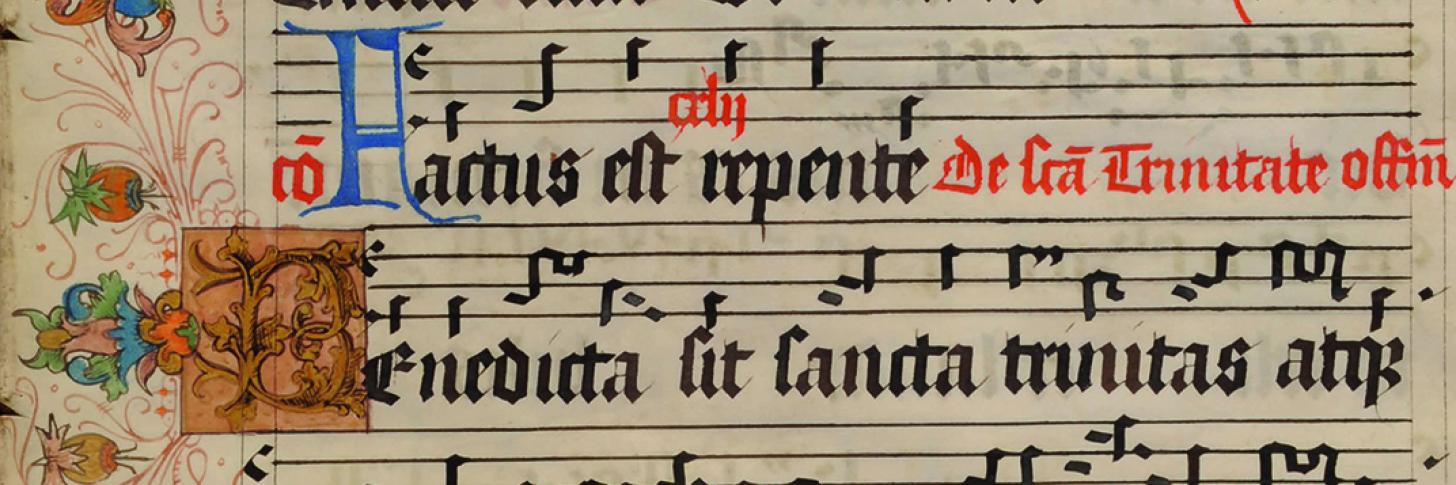 cclij
cō Factus est repente De scā Trinitate offm̄
BEnedicta sit sancta trinitas atqꝫ